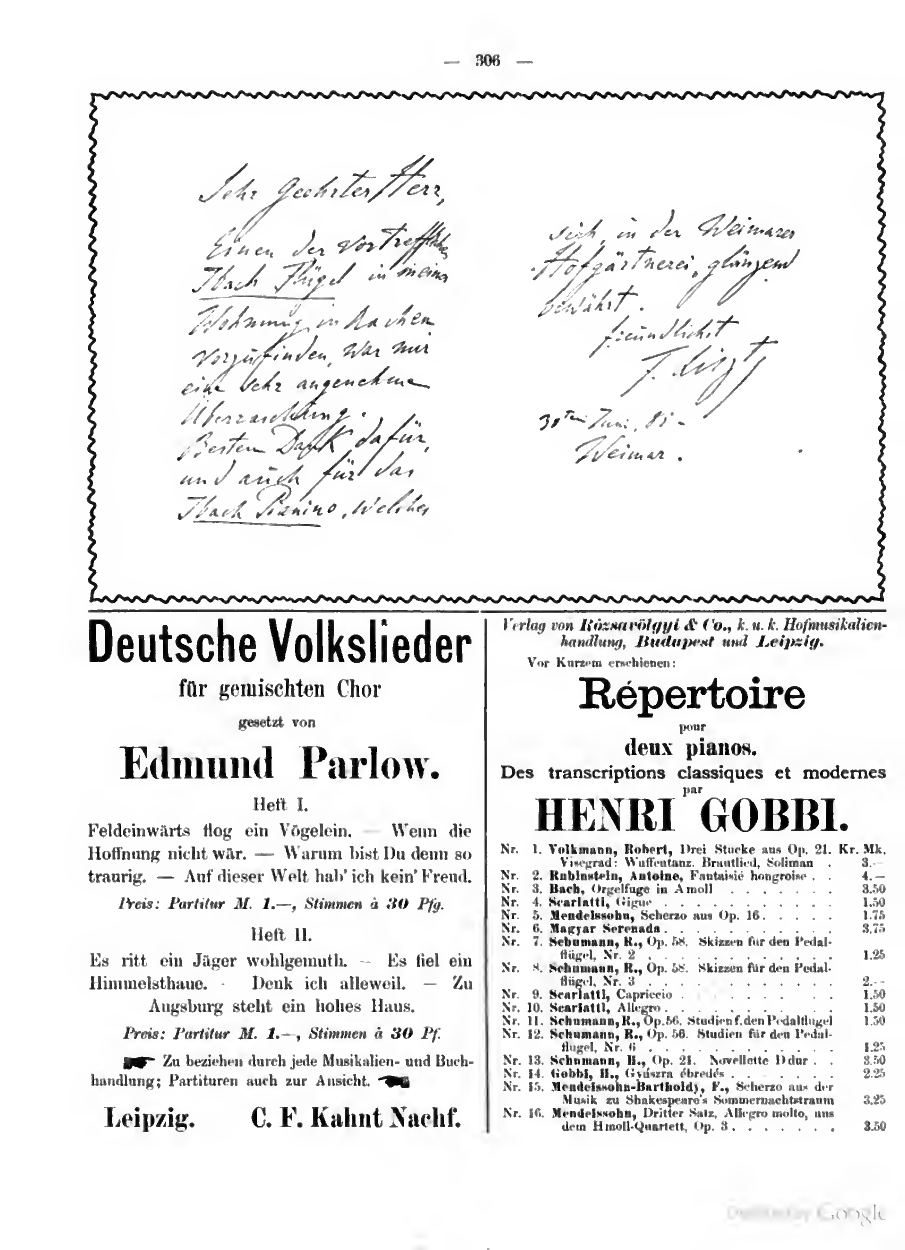 — 306 —
Sehr Geehrter Herr,
Einen der vortrefflichen
Ibach Flügel in meiner
Wohnung in Aachen
vorzufinden, war mir
eine sehr angenehme
Überraschung.
Besten Dank dafür,
und auch für das
Ibach Pianino, welches
sich, in der Weimarer
"Hofgärtnerei" glänzend
bewährt.
freundlichst
F. Liszt
30ten Juni, 85 -
Weimar.
Deutsche Volkslieder
für gemischten Chor
gesetzt von
Edmund Parlow.
Heft I.
Feldeinwärts flog ein Vögelein. — Wenn die
Hoffnung nicht wär. — Warum bist Du denn so
traurig. — Auf dieser Welt hab' ich kein' Freud.
Preis: Partitur M. 1.—, Stimmen à 30 Pfg.
Heft II.
Es ritt ein Jäger wohlgemuth. — Es fiel ein
Himmelsthaue. - Denk ich alleweil. — Zu
Augsburg steht ein hohes Haus.
Preis: Partitur M. 1.—, Stimmen à 30 Pf.
Zu beziehen durch jede Musikalien- und Buch-
handlung; Partituren auch zur Ansicht.
Leipzig. C. F. Kahnt Nachf.
Verlag von Rózsavölgyi & Co., k. u. k. Hofmusikalien-
handlung, Budapest und Leipzig.
Vor Kurzem erschienen:
Répertoire
pour
deux pianos.
Des transcriptions classiques et modernes
par
HENRI GOBBI.
Nr. 1. Volkmann, Robert, Drei Stücke aus Op. 21. Kr. Mk.
Visegrad: Waffentanz. Brautlied, Soliman . 3.—
Nr. 2. Rubinstein, Antoine, Fantaisié hongroise . . 4.—
Nr. 3. Bach, Orgelfuge in A moll . . . . . . . 3.50
Nr. 4. Scarlatti, Gigue . . . . . . . . . . . 1.50
Nr. 5. Mendelssohn, Scherzo aus Op. 16 . . . . . 1.75
Nr. 6. Magyar Serenada . . . . . . . . . . . 3.75
Nr. 7. Schumann, R., Op. 58. Skizzen für den Pedal-
flügel, Nr. 2 . . . . . . . . . . . 1.25
Nr. 8. Schumann, R., Op. 58. Skizzen für den Pedal-
flügel, Nr. 3 . . . . . . . . . . . 2.—
Nr. 9. Scarlatti, Capriccio . . . . . . . . . . 1.50
Nr. 10. Scarlatti, Allegro . . . . . . . . . . . 1.50
Nr. 11. Schumann, R., Op. 56. Studien f. den Pedalflügel 1.50
Nr. 12. Schumann, R., Op. 56. Studien für den Pedal-
flügel, Nr. 6 . . . . . . . . . . . 1.25
Nr. 13. Schumann, R., Op. 21. Novellette D dur . . 3.50
Nr. 14. Gobbi, H., Gyászra ébredés . . . . . . . 2.25
Nr. 15. Mendelssohn-Bartholdy, F., Scherzo aus der
Musik zu Shakespeare's Sommernachtstraum 3.25
Nr. 16. Mendelssohn, Dritter Satz, Allegro molto, aus
dem H moll-Quartett, Op. 3 . . . . . . . 3.50
Digitized by Google